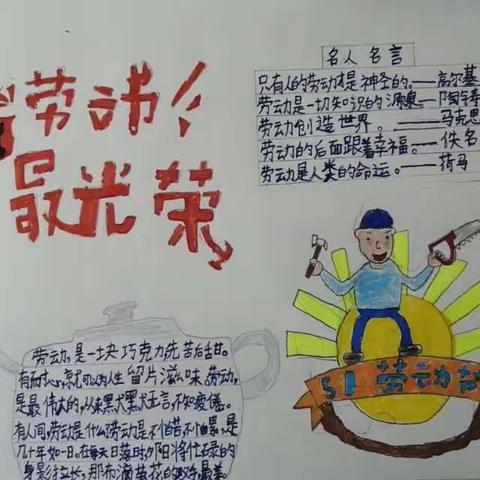 劳动
最光荣
名人名言
只有人的劳动才是神圣的。——高尔基
劳动是一切知识的源泉。——陶铸
劳动创造世界。——马克思
劳动的后面跟着幸福。——佚名
劳动是人类的命运。——荷马
51劳动节
劳动,是一块巧克力先苦后甜。
有 人生留片滋味,劳动,
是最伟大的, 默默无言,不知疲倦。
有人问劳动是什么劳动是不怕苦不怕累,是
几十年如一日,在每天日落时,夕阳将忙碌的
身影拉长,那布满 花的双手,最美。